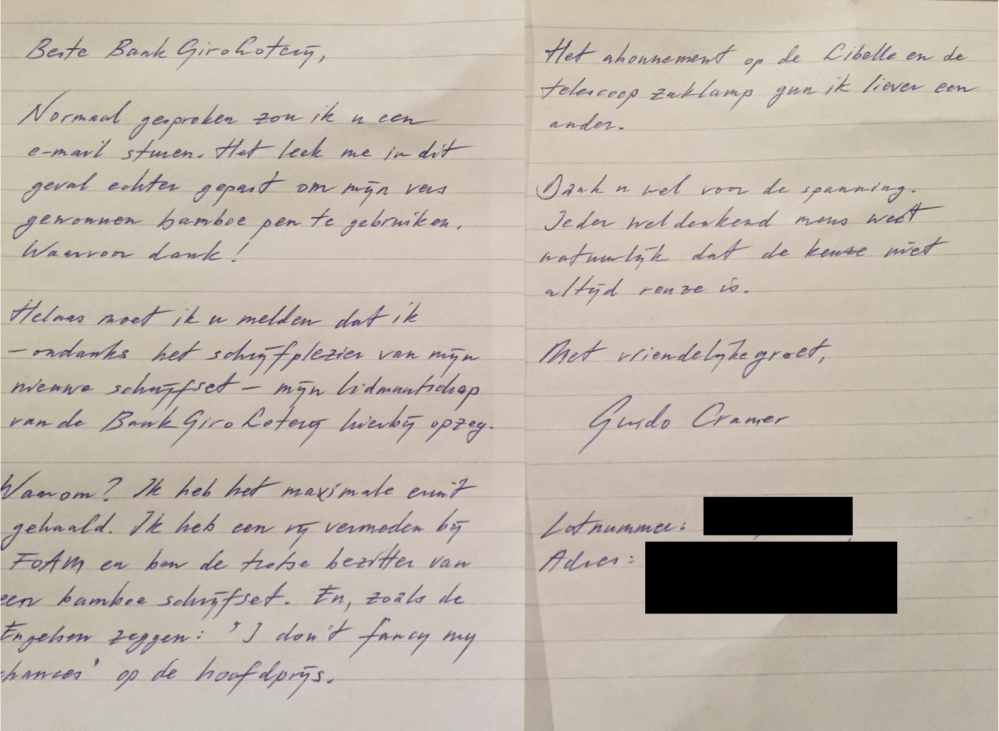 Beste BankGiroLoterij,
Normaal gesproken zou ik u een
e-mail sturen. Het leek me in dit
geval echter gepast om mijn vers
gewonnen bamboe pen te gebruiken.
Waarvoor dank!
Helaas moet ik u melden dat ik
– ondanks het schrijfplezier van mijn
nieuwe schrijfset – mijn lidmaatschap
van de BankGiroLoterij hierbij opzeg.
Waarom? Ik heb het maximale eruit
gehaald. Ik heb een rij vermeden bij
FOAM en ben de trotse bezitter van
een bamboe schrijfset. En, zoals de
Engelsen zeggen: 'I don't fancy my
chances' op de hoofdprijs.
Het abonnement op de Libelle en de
telescoop zaklamp gun ik liever een
ander.
Dank u wel voor de spanning.
Ieder weldenkend mens weet
natuurlijk dat de keuze niet
altijd reuze is.
Met vriendelijke groet,
Guido Cramer
Lotnummer:
Adres: